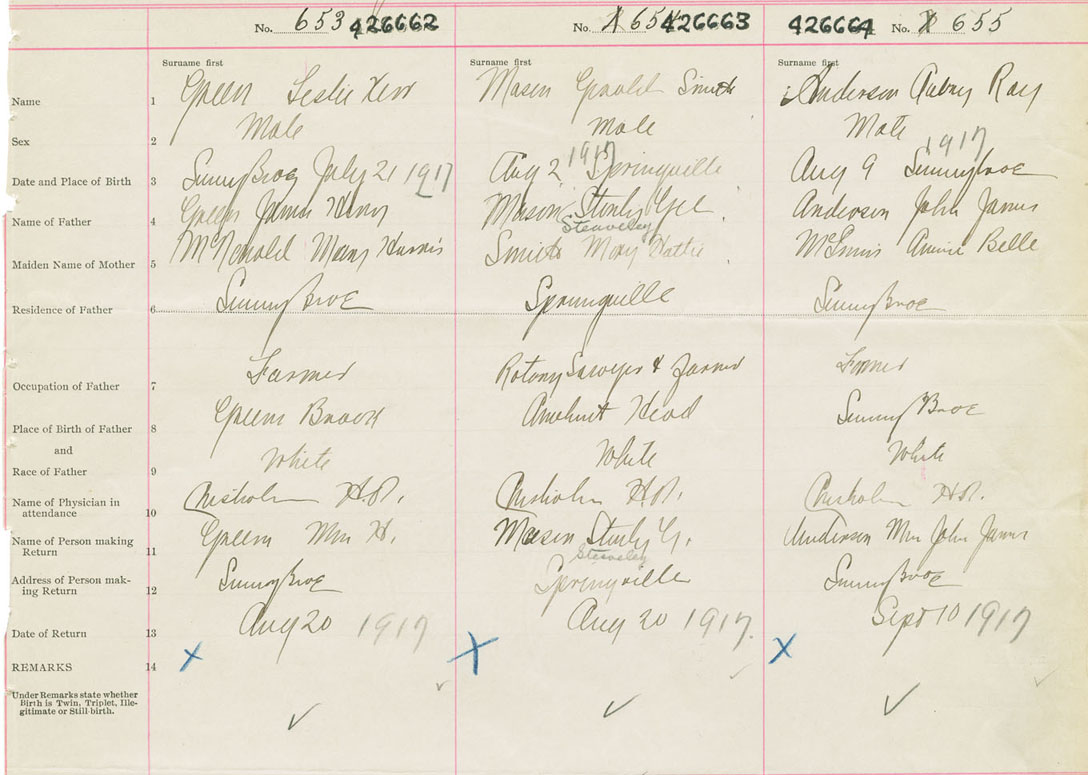 No. 653 426662 No. 654 426663 426664 No. 655
Surname first Surname first Surname first
Name 1 Green Leslie Kerr Mason Smith Anderson Aubry Ray
Sex 2 Male Male Male
Date and Place of Birth 3 SunnyBrae July 21 1917 Aug 2 1917 Springville Aug 9 1917 Sunnybrae
Name of Father 4 Green James Henry Mason Stanley Anderson John James
Steaveley
Maiden Name of Mother 5 Mary Smith Mary Hattie McInnis Annie Belle
Residence of Father 6 SunnyBrae Springville SunnyBrae
Occupation of Father 7 Farmer Rotary Sawyer & Farmer Farmer
Place of Birth of Father 8 Greens Brook Amherst Head Sunny Brae
and
Race of Father 9 White White White
Name of Physician in
attendance 10 Chisholm H.D. Chisholm H.D. Chisholm H.D.
Name of Person making
Return 11 Green Mrs H. Mason Stanly G. Anderson Mrs John James
Steaveley
Address of Person mak-
ing Return 12 SunnyBrae Springville SunnyBrae
Date of Return 13 Aug 20 1917 Aug 20 1917. Sept 10 1917
REMARKS 14 X X X
Under Remarks state whether
Birth is Twin, Triplet, Ille-
gitimate or Still-birth.